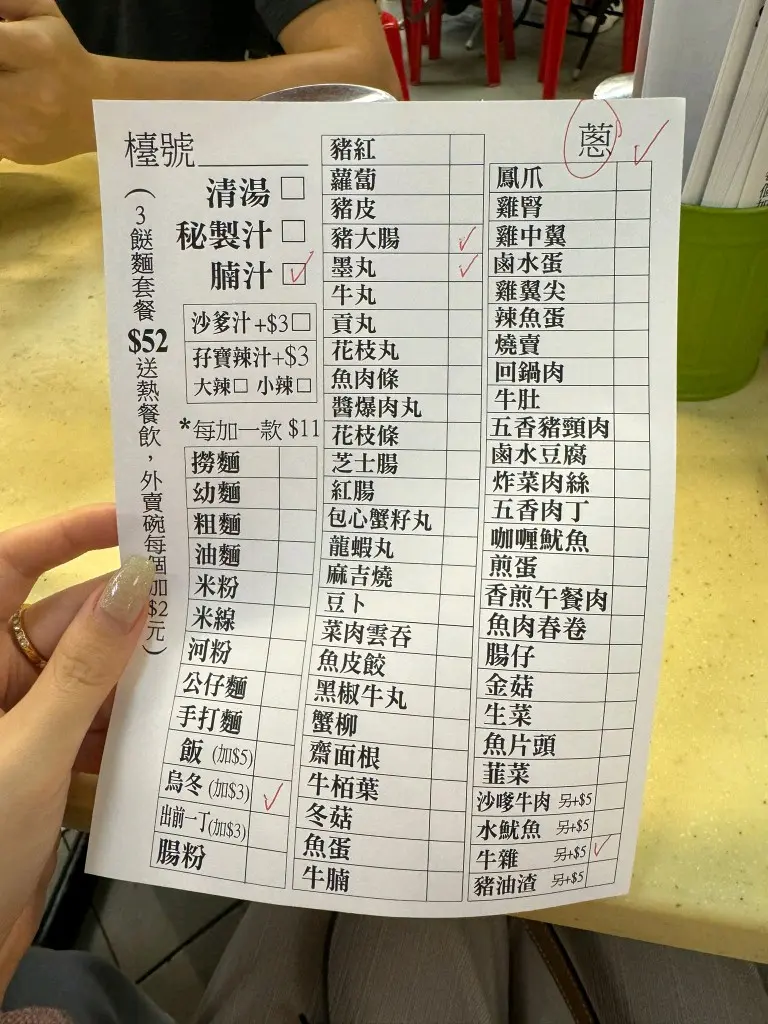 檯號
清湯
秘製汁
腩汁 ✓
沙爹汁+$3
孖寶辣汁+$3
大辣 小辣
*每加一款 $11
(3餸麵套餐$52送熱餐飲，外賣碗每個加$2元)
撈麵
幼麵
粗麵
油麵
米粉
米線
河粉
公仔麵
手打麵
飯 (加$5)
烏冬 (加$3) ✓
出前一丁(加$3)
腸粉
豬紅
蘿蔔
豬皮
豬大腸 ✓
墨丸 ✓
牛丸
貢丸
花枝丸
魚肉條
醬爆肉丸
花枝條
芝士腸
紅腸
包心蟹籽丸
龍蝦丸
麻吉燒
豆卜
菜肉雲吞
魚皮餃
黑椒牛丸
蟹柳
齋面根
牛栢葉
冬菇
魚蛋
牛腩
蔥 ✓
鳳爪
雞腎
雞中翼
鹵水蛋
雞翼尖
辣魚蛋
燒賣
回鍋肉
牛肚
五香豬頸肉
鹵水豆腐
炸菜肉絲
五香肉丁
咖喱魷魚
煎蛋
香煎午餐肉
魚肉春卷
腸仔
金菇
生菜
魚片頭
韮菜
沙嗲牛肉 另+$5
水魷魚 另+$5
牛雜 另+$5 ✓
豬油渣 另+$5